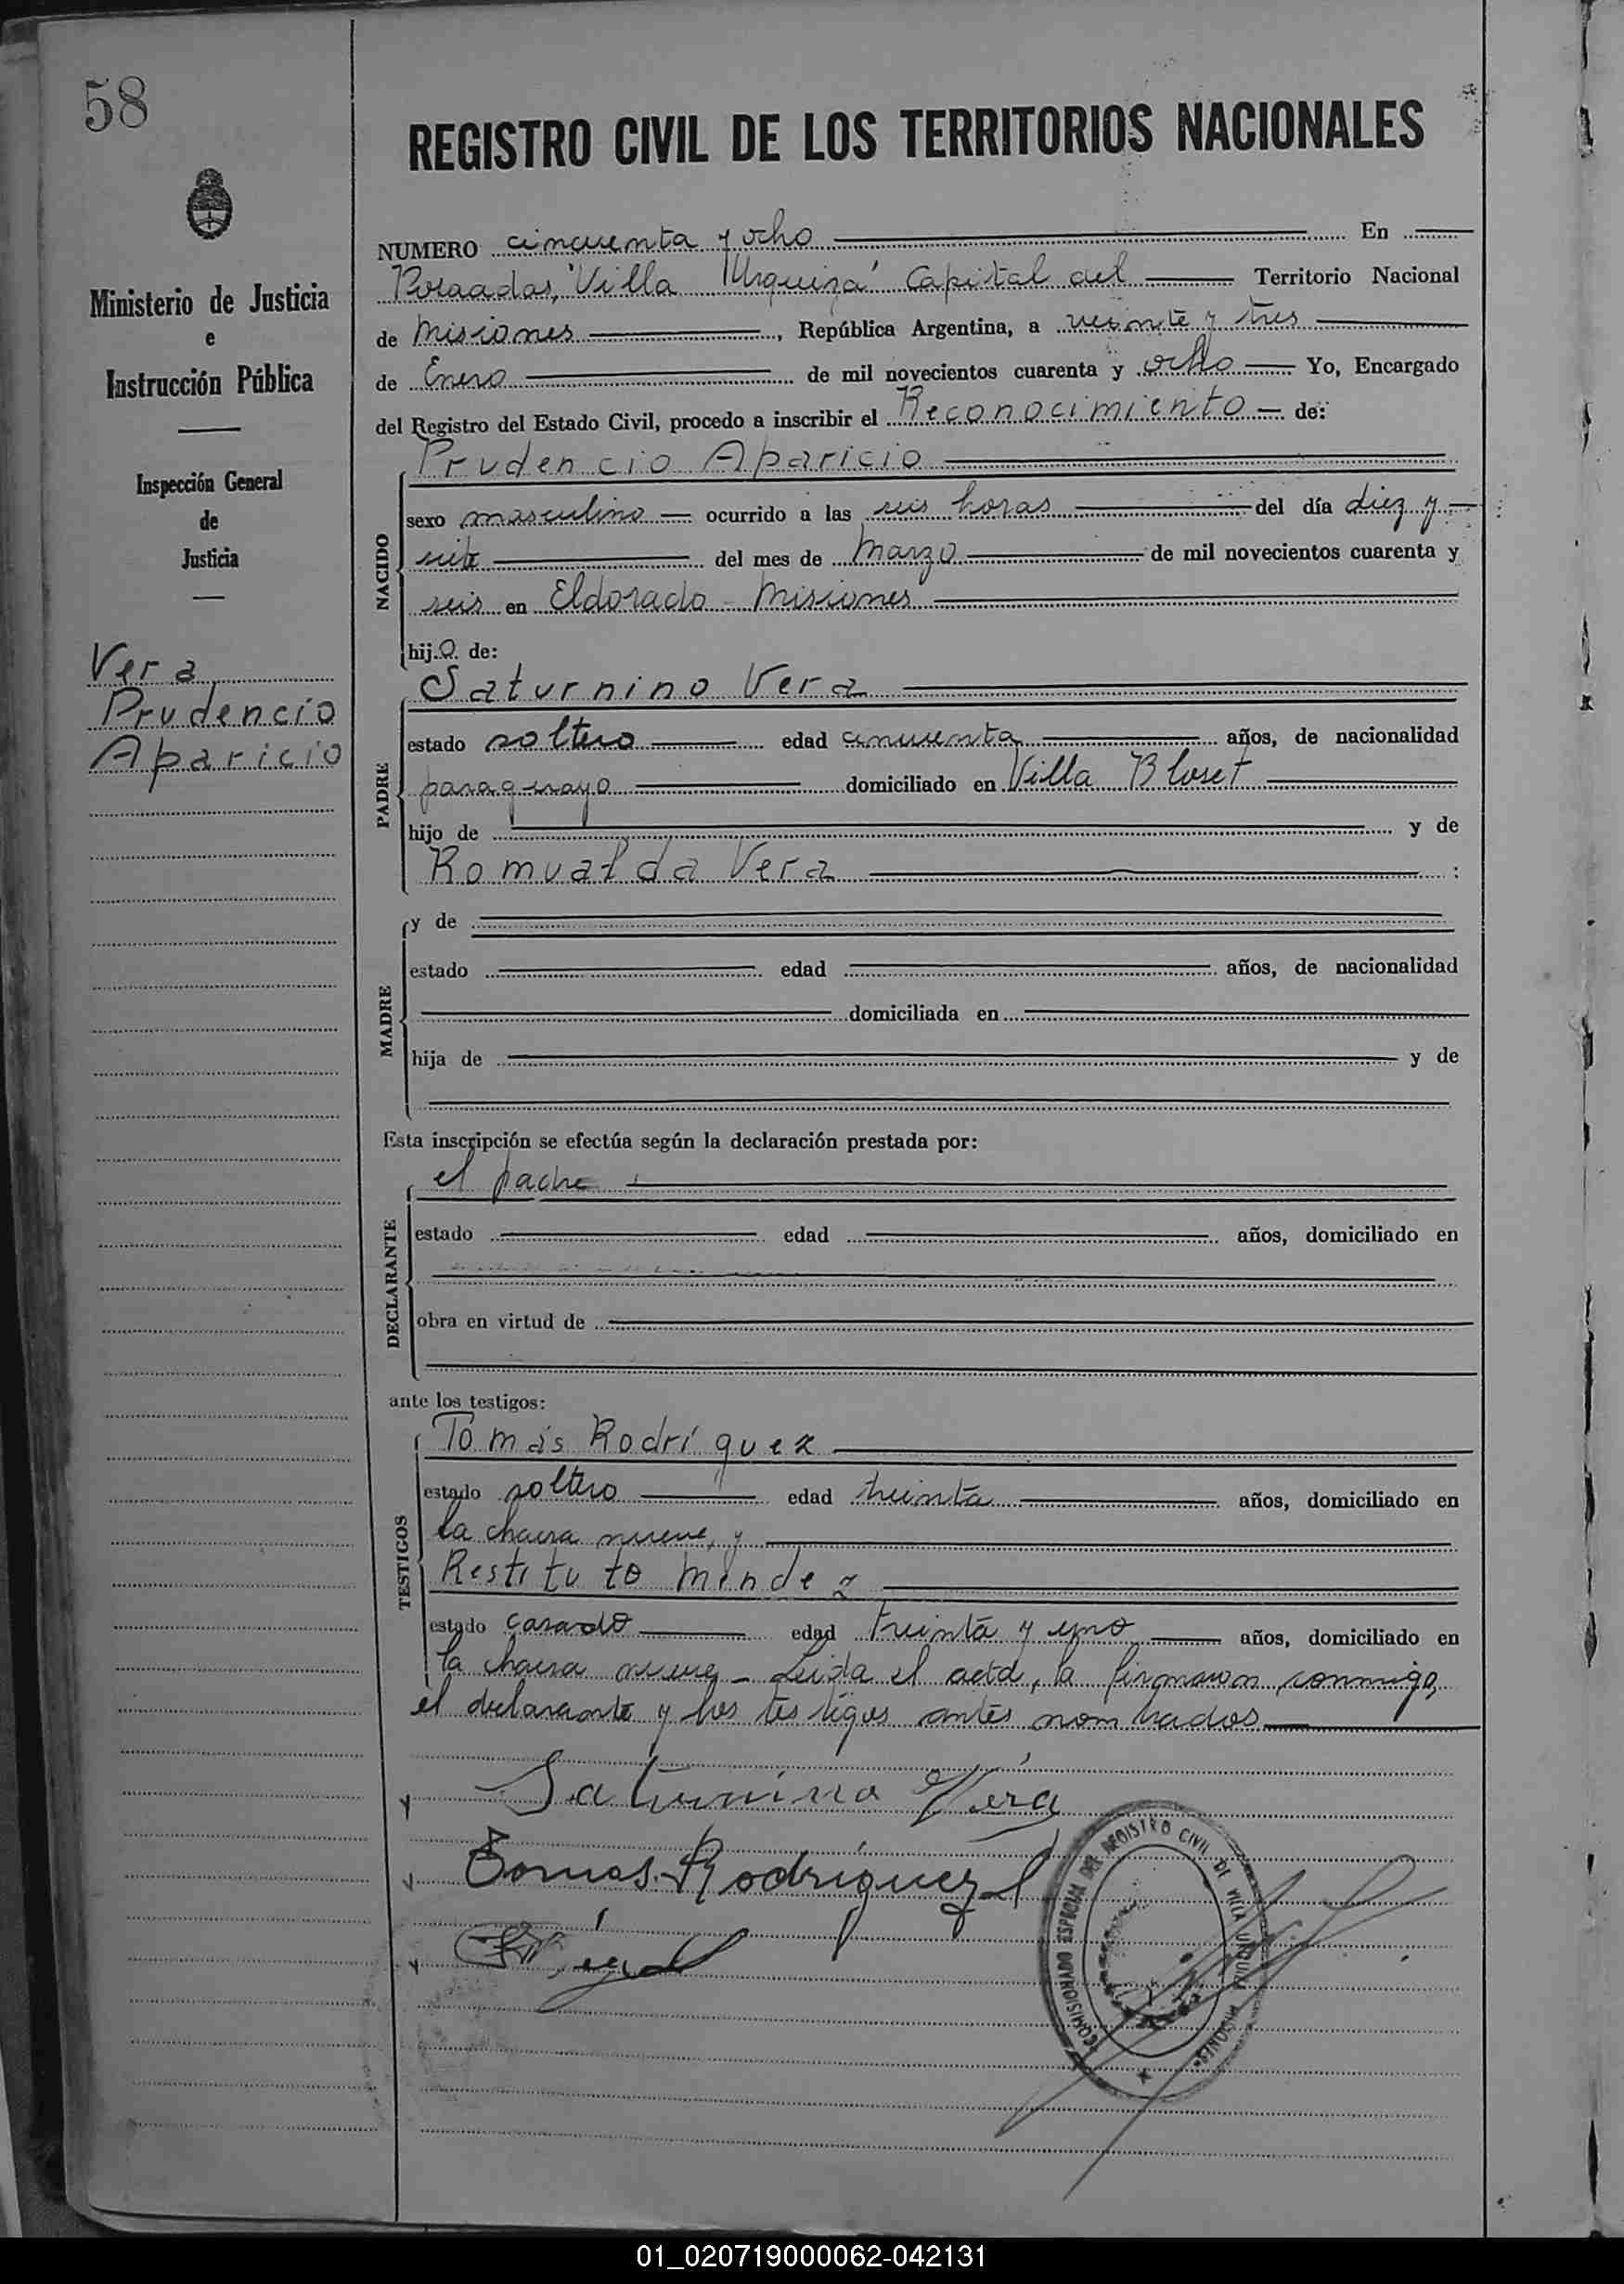 58
REGISTRO CIVIL DE LOS TERRITORIOS NACIONALES
NUMERO cincuenta y ocho En
Posadas, "Villa Urquiza" Capital del Territorio Nacional
de Misiones, República Argentina, a veinte y tres
de Enero de mil novecientos cuarenta y ocho Yo, Encargado
del Registro del Estado Civil, procedo a inscribir el Reconocimiento de:
Ministerio de Justicia
e
Instrucción Pública
Inspección General
de
Justicia
Vera
Prudencio
Aparicio
NACIDO
Prudencio Aparicio
sexo masculino ocurrido a las seis horas del día diez y
siete del mes de Marzo de mil novecientos cuarenta y
seis en Eldorado - Misiones
hijo de:
PADRE
Saturnino Vera
estado soltero edad cincuenta años, de nacionalidad
paraguayo domiciliado en Villa Bloset
hijo de y de
Romualda Vera
MADRE
y de
estado edad años, de nacionalidad
domiciliada en
hija de y de
Esta inscripción se efectúa según la declaración prestada por:
DECLARANTE
el padre
estado edad años, domiciliado en
obra en virtud de
ante los testigos:
TESTIGOS
Tomás Rodríguez
estado soltero edad treinta años, domiciliado en
la chacra nueve, y
Restituto Mendez
estado casado edad treinta y uno años, domiciliado en
la chacra nueve - Leida el acta, la firmaron conmigo,
el declarante y los testigos antes nombrados
Saturnino Vera
Tomas Rodríguez
COMISIONADO ESPECIAL DEL REGISTRO CIVIL DE VILLA URQUIZA MISIONES
01_020719000062-042131